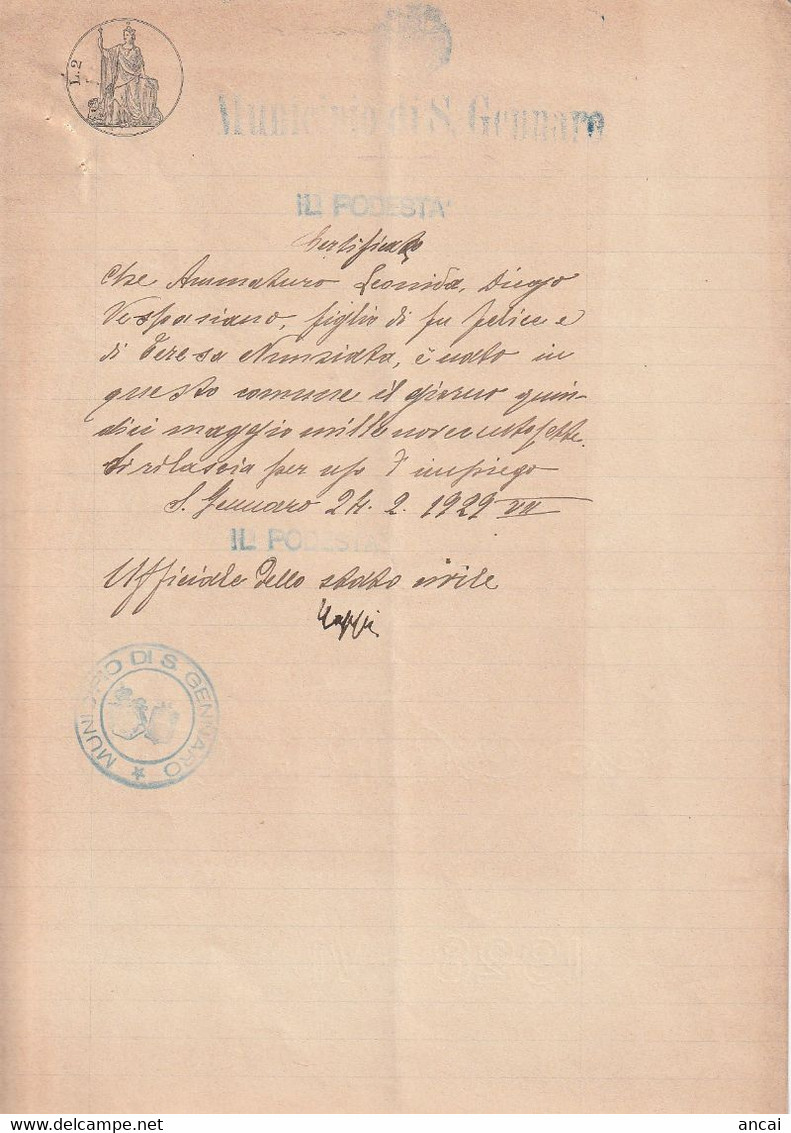 L. 2
Municipio di S. Gennaro
IL PODESTA'
Certificato
che Ammaturo Leonida, Diego
Vespasiano, figlio di fu Felice e
di Teresa Nunziata, è nato in
questo comune il giorno quin-
dici maggio mille novecentosette.
Si rilascia per uso d'impiego
S. Gennaro 24. 2. 1929 VII
IL PODESTA'
Ufficiale dello stato civile
MUNICIPIO DI S. GENNARO
delcampe.net
ancai